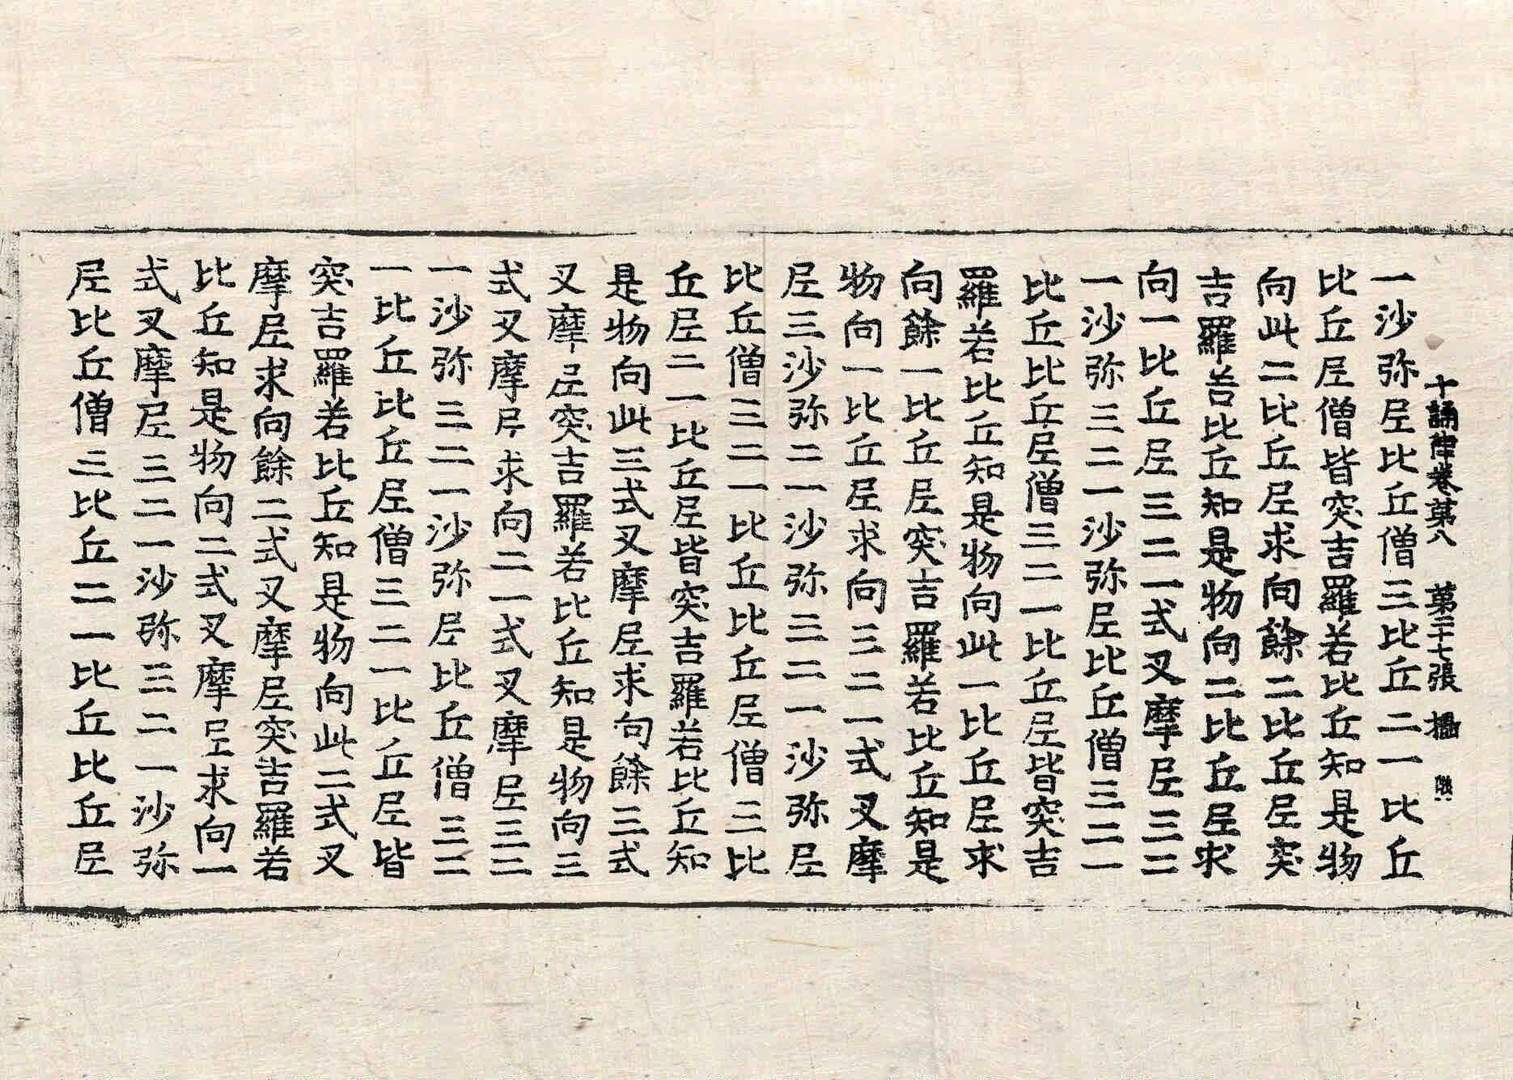 十誦律卷苐八 苐二十七張
一沙弥尼比丘僧三比丘二一比丘
比丘尼僧皆突吉羅若比丘知是物
向此二比丘尼求向餘二比丘尼突
吉羅若比丘知是物向二比丘尼求
向一比丘尼三二一式叉摩尼三二
一沙弥三二一沙弥尼比丘僧三二一
比丘比丘尼僧三二一比丘尼皆突吉
羅若比丘知是物向此一比丘尼求
向餘一比丘尼突吉羅若比丘知是
物向一比丘尼求向三二一式叉摩
尼三沙弥二一沙弥三二一沙弥尼
比丘僧三二一比丘比丘尼僧三比
丘尼二一比丘尼皆突吉羅若比丘知
是物向此三式叉摩尼求句餘三式
叉摩尼突吉羅若比丘知是物向三
式叉摩尼求向二一式叉摩尼三二
一沙弥三二一沙弥尼比丘僧三二
一比丘比丘尼僧三二一比丘尼皆
突吉羅若比丘知是物向此二式叉
摩尼求向餘二式叉摩尼突吉羅若
比丘知是物向二式叉摩尼求向一
式叉摩尼三二一沙弥三二一沙弥
尼比丘僧三比丘二一比丘比丘尼